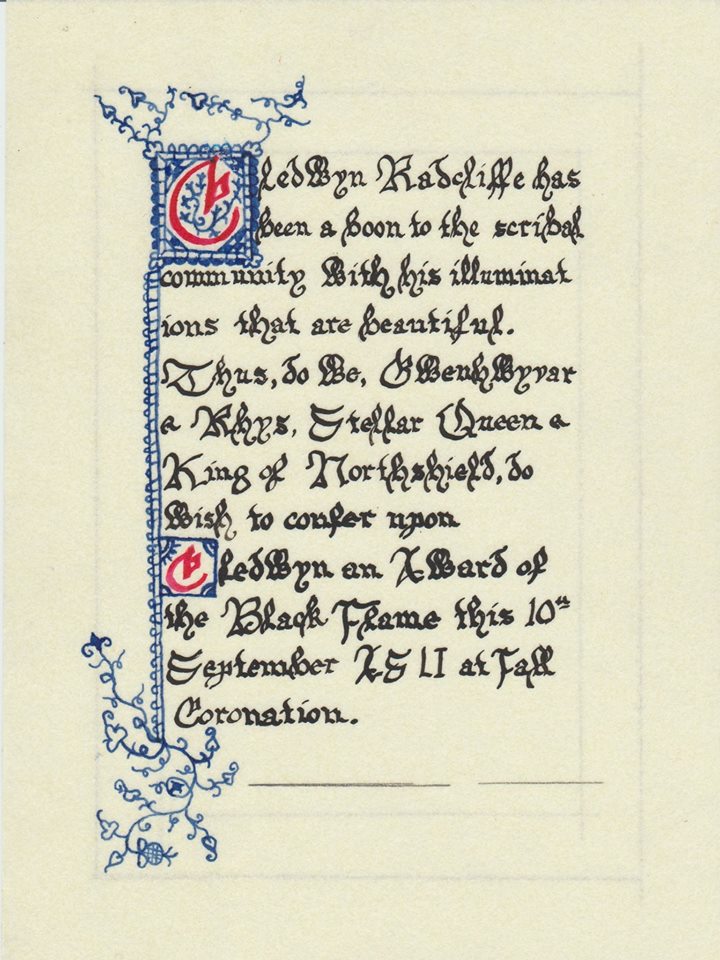 Cledwyn Radcliffe has
been a boon to the scribal
community with his illuminat
ions that are beautiful.
Thus, do We, Gwenhwyvar
& Rhys, Stellar Queen &
King of Northshield, do
wish to confer upon
Cledwyn an Award of
the Black Flame this 10th
September A S LI at Fall
Coronation.